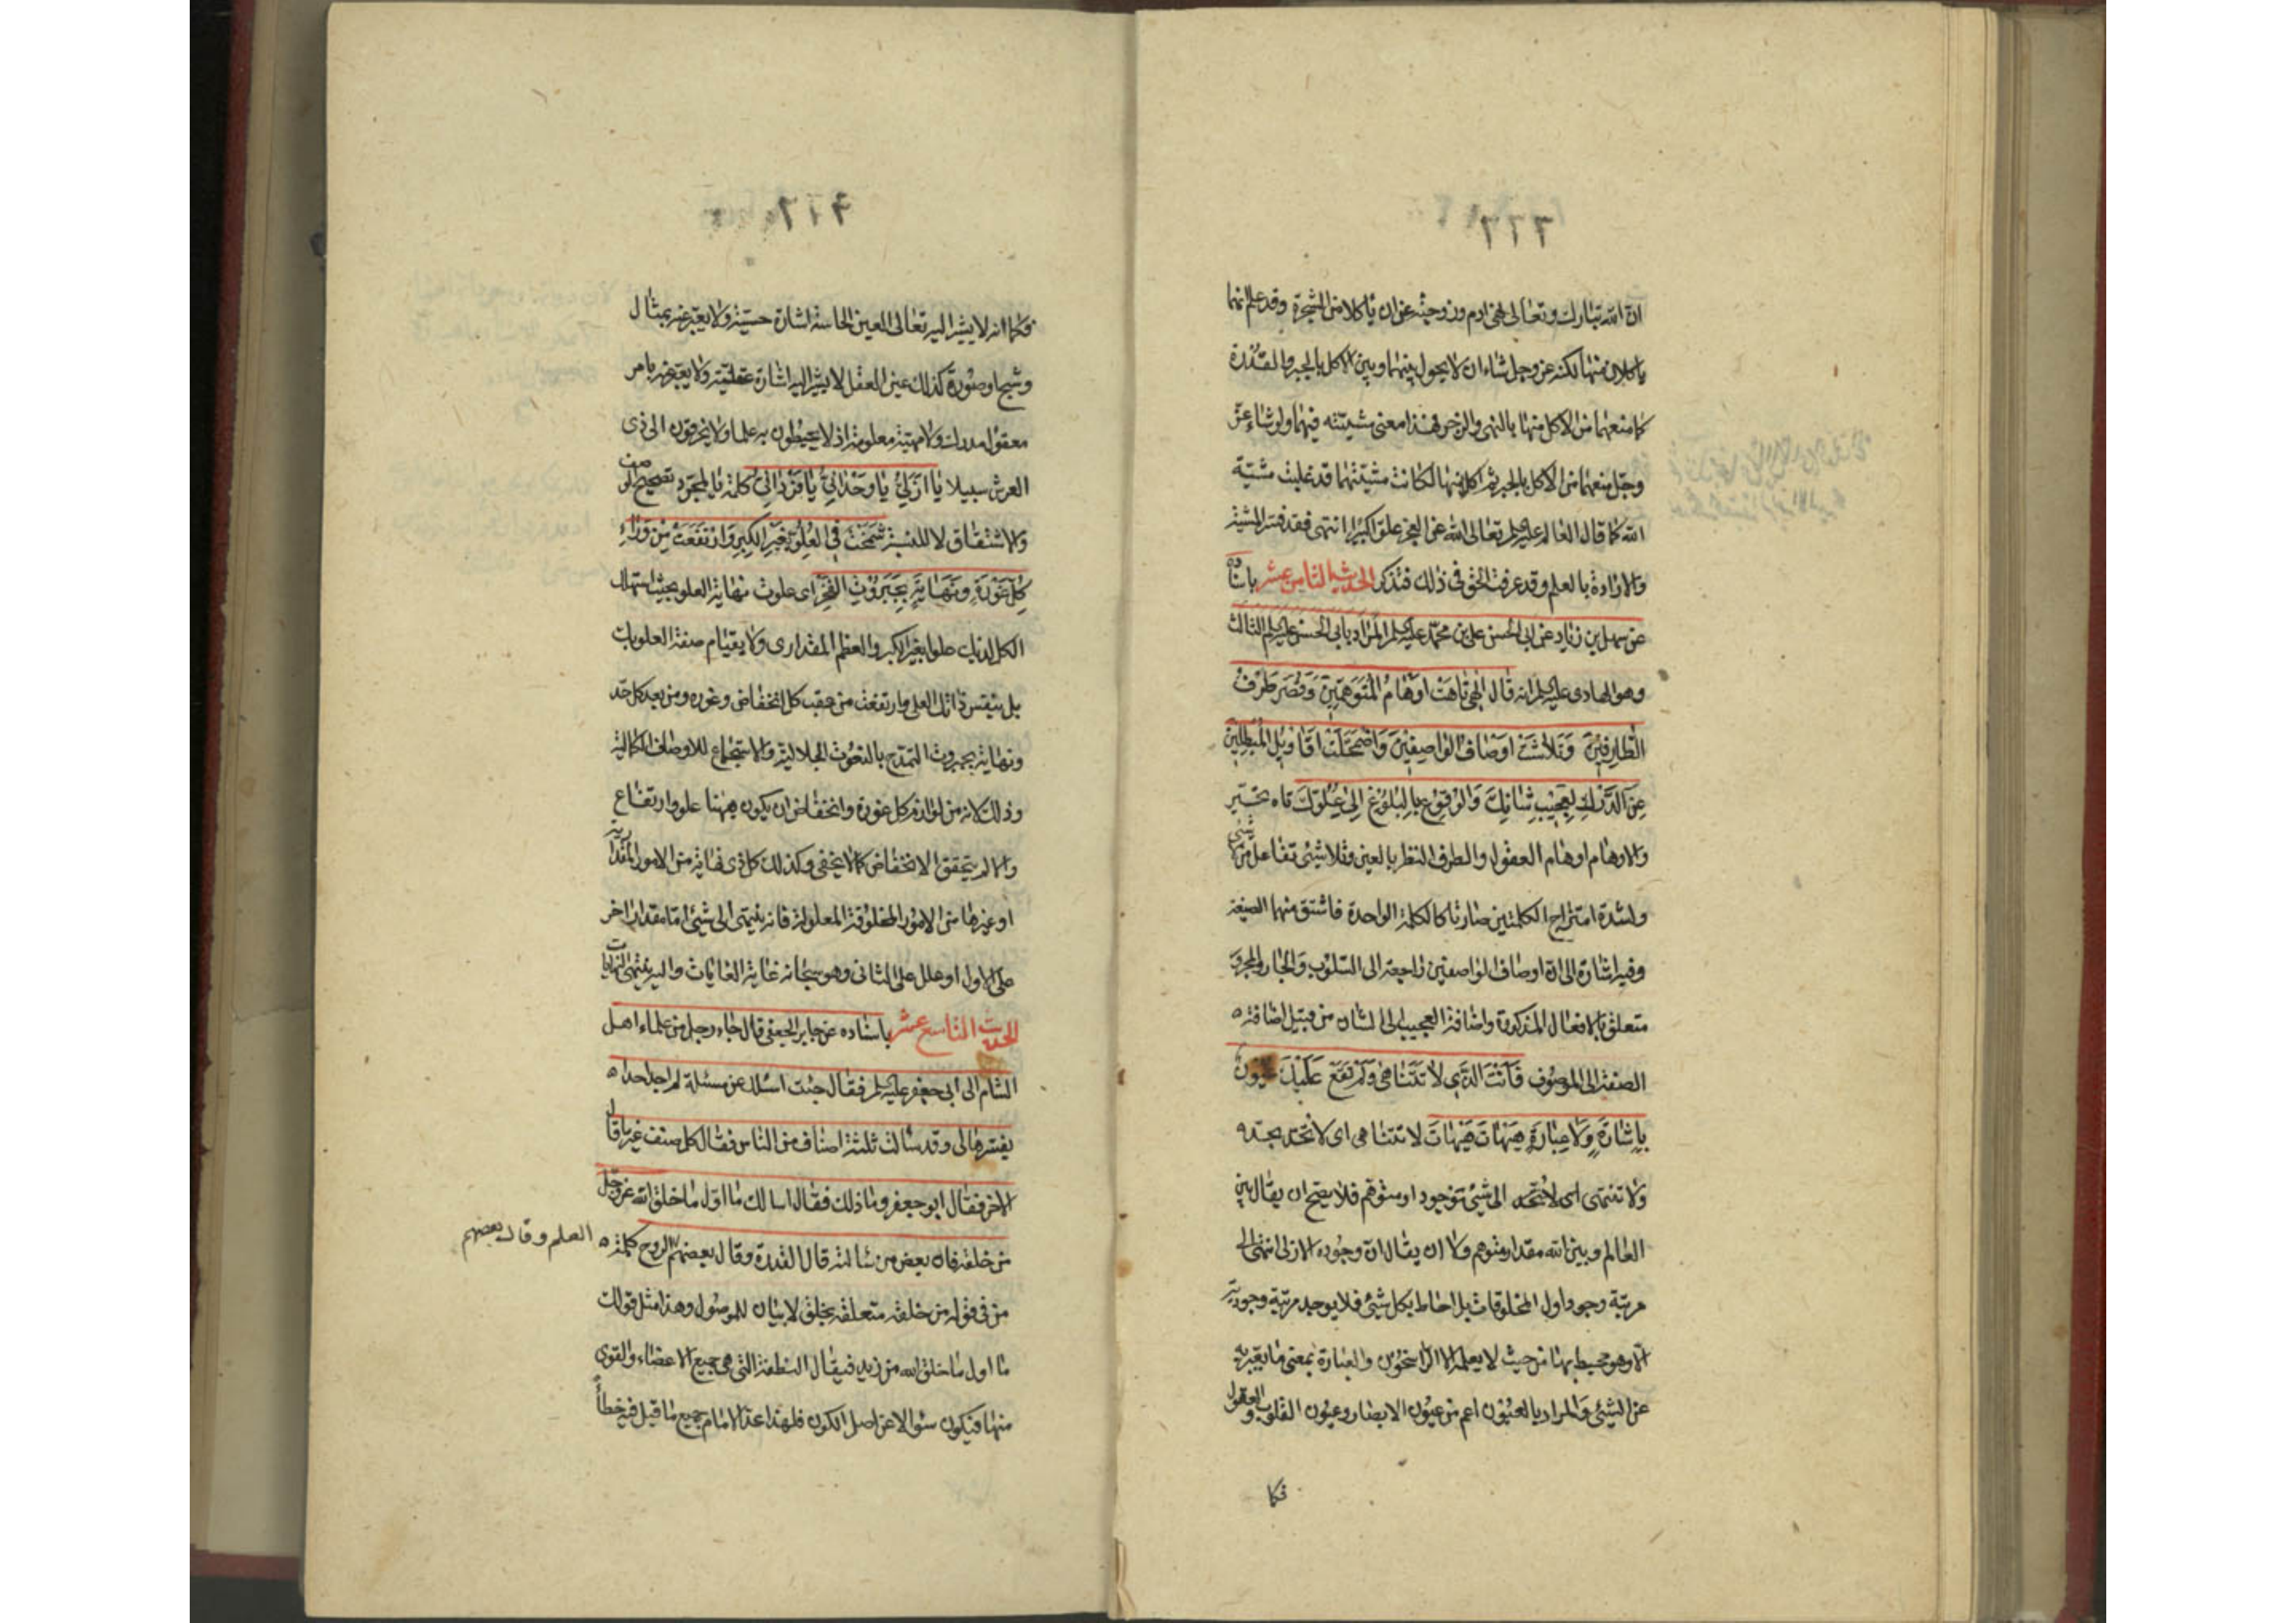 ان الله تبارك وتعالى نهى ادم وزوجته عن ان ياكلا من الشجرة وقد علم انهما
ياكلان منها لكنه عز وجل شاء ان لا يحول بينهما وبين الاكل بالجبر والقدرة
كما منعهما من الاكل منها بالنهى والزجر فهذا معنى مشيته فيهما ولو شاء عز
وجل منعهما من الاكل بالجبر ثم اكلا منها لكانت مشيتهما قد غلبت مشية
الله كما قال العالم عليه السلم تعالى الله عن العجز علوا كبيرا انتهى فقد فسر المشية
والارادة بالعلم وقد عرفت الحق فى ذلك فتذكر الحديث الثامن عشر باسناده
عن سهل بن زياد عن ابى الحسن على بن محمد عليه السلم المراد بابى الحسن عليه السلم الثالث
وهو الهادى عليه السلم انه قال الهى تاهت اوهام المتوهمين وقصر طرف
الطارفين وتلاشت اوصاف الواصفين واضمحلت اقاويل المبطلين
عن الدرك لعجيب شانك والوقوع بالبلوغ الى علوك تاه تحير
والاوهام اوهام العقول والطرف النظر بالعين وتلاشى تفاعل من لا شئ
ولشدة امتزاج الكلمتين صارتا كالكلمة الواحدة فاشتق منهما الصيغة
وفيه اشارة الى ان اوصاف الواصفين راجعة الى السلوب والجار والمجرور
متعلق بالافعال المذكورة واضافة العجيب الى الشان من قبيل اضافة
الصفة الى الموصوف فانت الذى لا تتناهى ولم تقع عليك عيون
باشارة ولا عبارة هيهات هيهات لا تتناهى اى لا تحد بحد
ولا تنتهى اى الى شئ موجود او متوهم فلا يصح ان يقال بين
العالم وبين الله مقدار متوهم ولا ان يقال ان وجوده الازلى انتهى الى
مرتبة وجود اول المخلوقات بل احاط بكل شئ فلا يوجد مرتبة وجودية
الا وهو محيط بها من حيث لا يعلمه الا الراسخون والعبارة بمعنى ما يعبر به
عن الشئ والمراد بالعيون اعم من عيون الابصار وعيون القلوب والعقول
فكما
فكما انه لا يشير اليه تعالى العين الحاسة اشارة حسية ولا يعبر عنه بمثال
وشبح او صورة كذلك عين العقل لا يشير اليه اشارة عقلية ولا يعبر عنه بامر
معقول مدرك ولا مهية معلومة اذ لا يحيطون به علما ولا يخرقون الى ذى
العرش سبيلا يا ازلى يا وحدانى يا فردانى كلمة يا لمجرد تصحيح الوصف
والاشتقاق لا للنسبة شمخت فى العلو بغير الكبر وارتفعت من وراء
كل غورة ونهاية بجبروت الفخر اى علوت نهاية العلو بحيث استهلك
الكل لديك علوا بغير الكبر والعظم المقدارى ولا بقيام صفة العلو بك
بل بنفس ذاتك العلى وارتفعت من عقب كل انخفاض وغوره ومن بعد كل حد
ونهاية بجبروت التمدح بالنعوت الجلالية والاستجماع للاوصاف الكمالية
وذلك لانه من لوازم كل غورة وانخفاض ان يكون هيهنا علو وارتفاع
والا لم يتحقق الانخفاض كما لا يخفى وكذلك كل ذى نهاية من الامور المقدارية
او غيرها من الامور المخلوقة المعلولة فانه ينتهى الى شئ اما مقدار اخر
على الاول او علل على الثانى وهو سبحانه غاية الغايات واليه ينتهى النهايات
الحديث التاسع عشر باسناده عن جابر الجعفى قال جاء رجل من علماء اهل
الشام الى ابى جعفر عليه السلم فقال جئت اسئلك عن مسئلة لم اجد احدا
يفسرها لى وقد سالت ثلثة اصناف من الناس فقال كل صنف غير ما قال
الاخر فقال ابو جعفر وما ذلك فقال اسالك ما اول ما خلق الله عز وجل
من خلقه فان بعض من سالته قال القدرة وقال بعضهم الروح كلمة
العلم وقال بعضهم
من فى قوله من خلقه متعلقة بخلق لا بيان للموصول وهذا مثل قولك
ما اول ما خلق الله من زيد فيقال النطفة التى هى جميع الاعضاء والقوى
منها فيكون سؤالا عن اصل الكون فلهذا عد الامام جميع ما قيل فيه خطأ